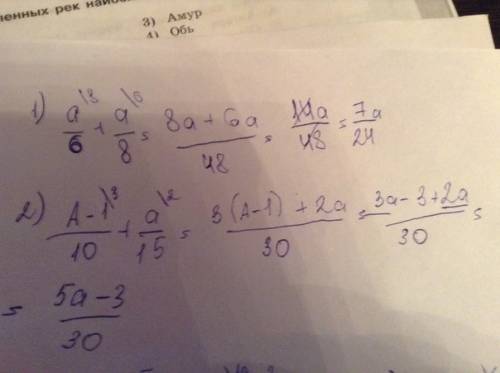 енных рек наибо
3) Амур
4) Обь
1) a\8/6 + a\6/8 = (8a + 6a)/48 = 14a/48 = 7a/24
2) A-1\3/10 + a\2/15 = (3(A-1) + 2a)/30 = (3a-3+2a)/30 =
= (5a-3)/30